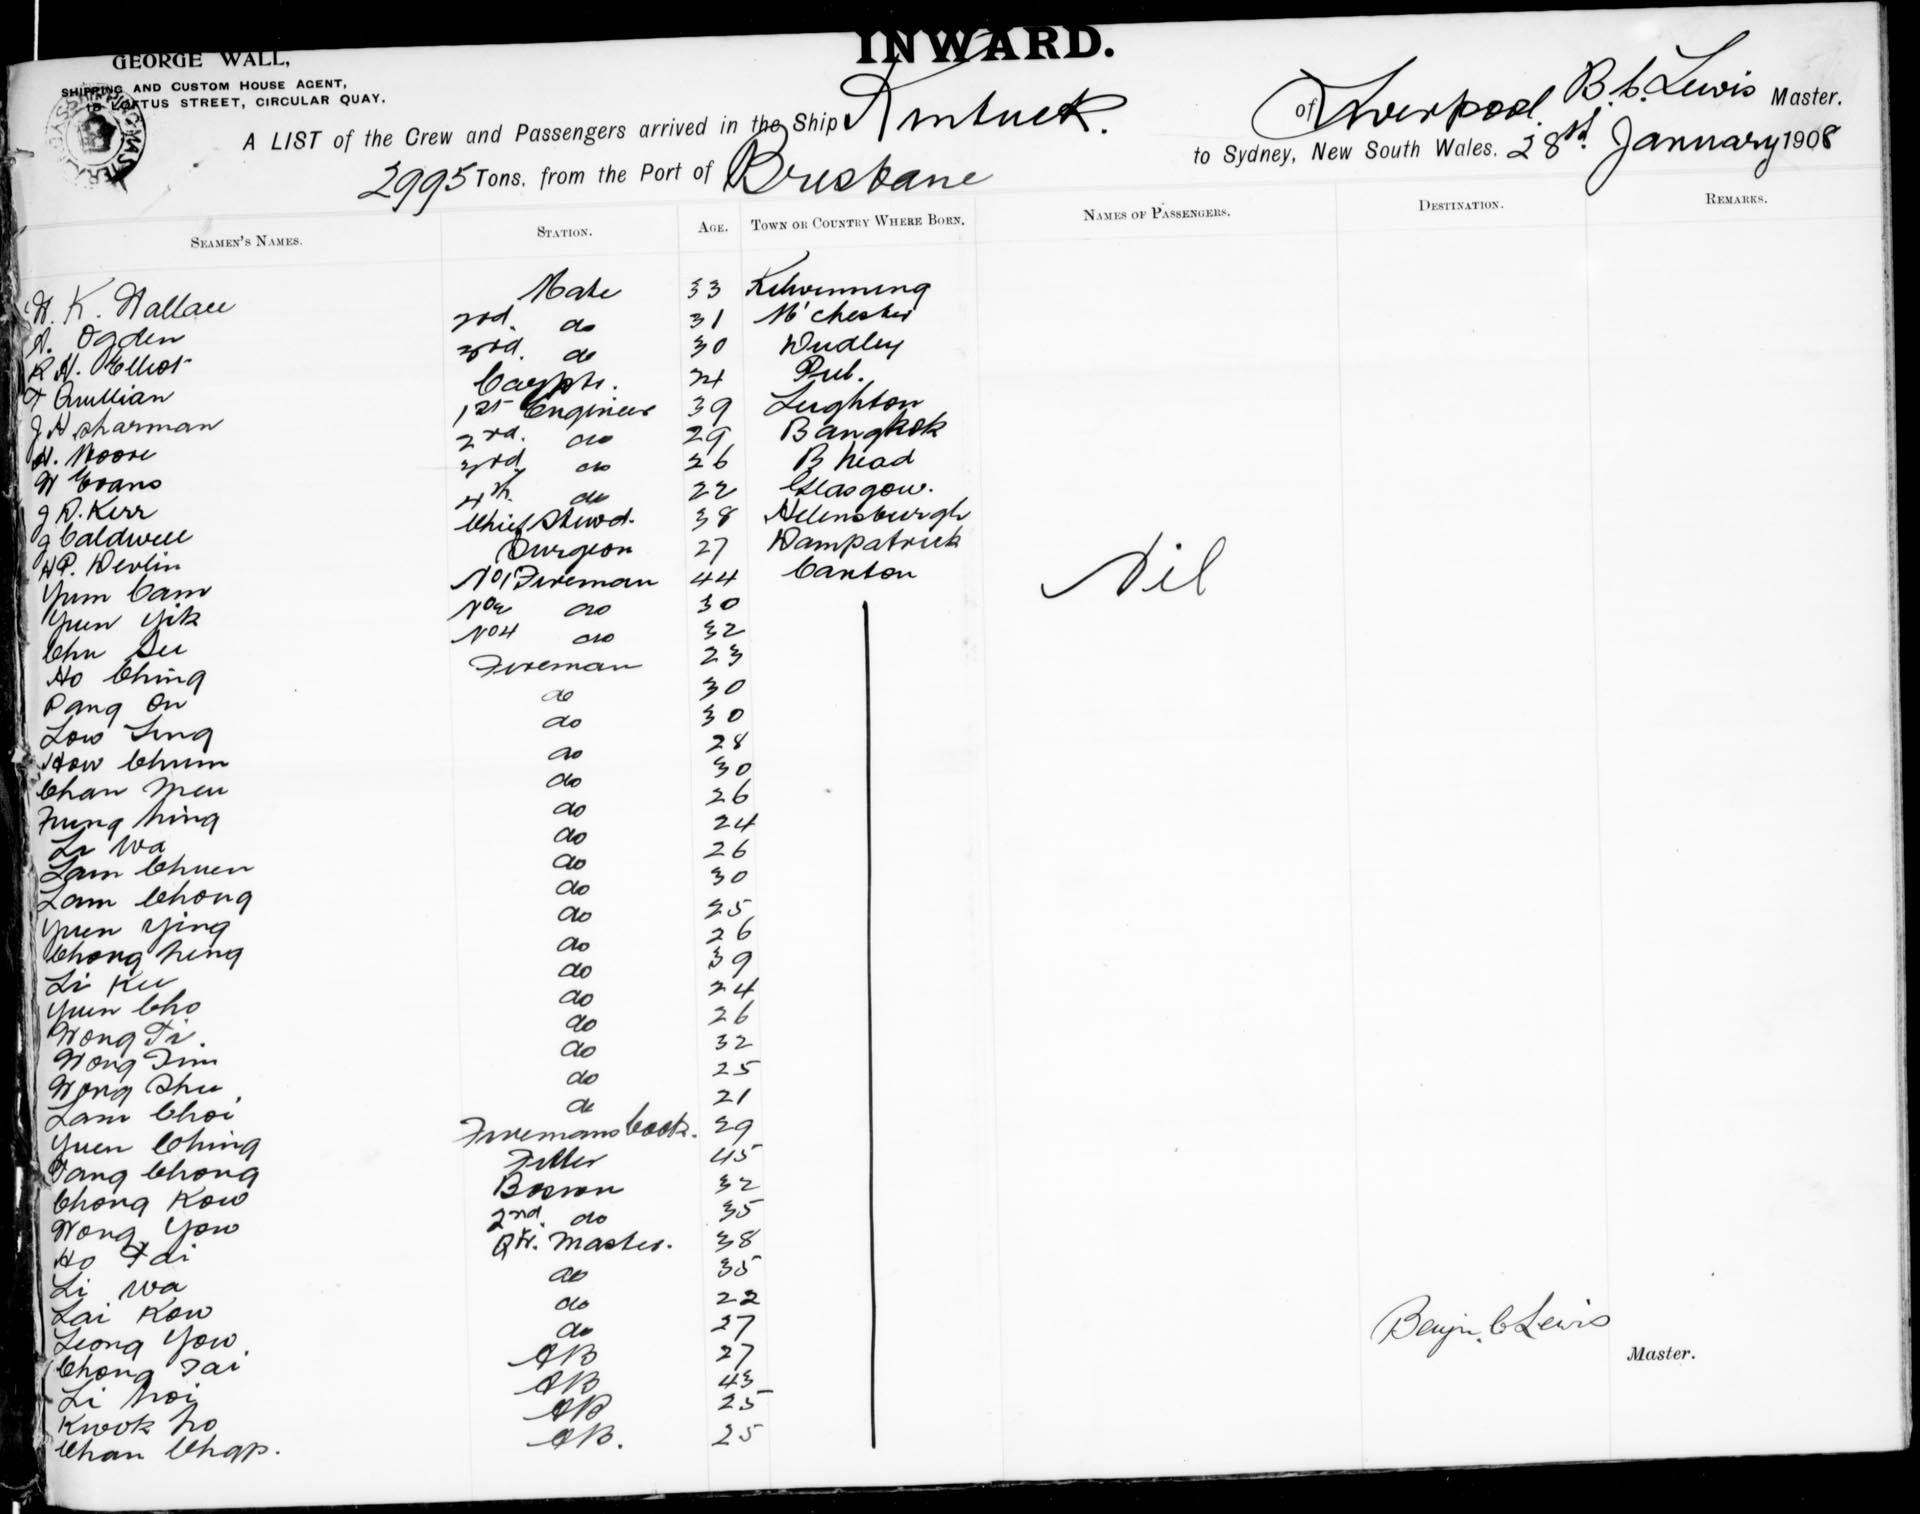 INWARD.
GEORGE WALL,
SHIPPING AND CUSTOM HOUSE AGENT,
LOFTUS STREET, CIRCULAR QUAY.
A LIST of the Crew and Passengers arrived in the Ship Kintuck. of Liverpool. B. C. Lewis Master.
2995 Tons, from the Port of Brisbane to Sydney, New South Wales, 28th January 1908
SEAMEN'S NAMES. STATION. AGE. TOWN OR COUNTRY WHERE BORN. NAMES OF PASSENGERS. DESTINATION. REMARKS.
W. K. Wallace Mate 33 Kilwinning
A. Ogden 2nd. do 31 M'chester
R H. Elliot 3rd. do 30 Dudley
Quillian Carptr. 24
J H Sharman 1st Engineer 39 Leighton
H. Moore 2nd. do 29 Bangkok
W Evans 3rd do 26 B head
J D. Kerr 4th. do 22 Glasgow.
J Caldwell Chief Stewd. 38 Helensburgh
H P. Devlin Surgeon 27 Dampatrick
Yum Cam No1 Fireman 44 Canton
Yuen Yik No2 do 30
Chu Su No4 do 32
Ho Ching Fireman 23
Pang On do 30
Low Sing do 30
How Chum do 28
Chan Meu do 30
Fung Ning do 26
Li Wa do 24
Lam Chuen do 26
Lam Chong do 30
Yuen Ying do 25
Chong Neng do 26
Li Kee do 39
Yuen Cho do 24
Wong Ti. do 26
Wong Tim do 32
Wong Shu do 25
Lam Choi do 21
Yuen Ching Firemans Cook. 29
Tang Chong Fitter 45
Chong Kow Bosun 32
Wong Yow 2nd. do 35
Ho Tai Qtr. Master. 38
Li Wa do 35
Lai Kow do 22
Leong Yow do 27
Chong Tai AB 27
Li Noi AB 43
Kwok Ho AB 25
Chan Chap. AB. 25
Nil
Benjn. C Lewis
Master.